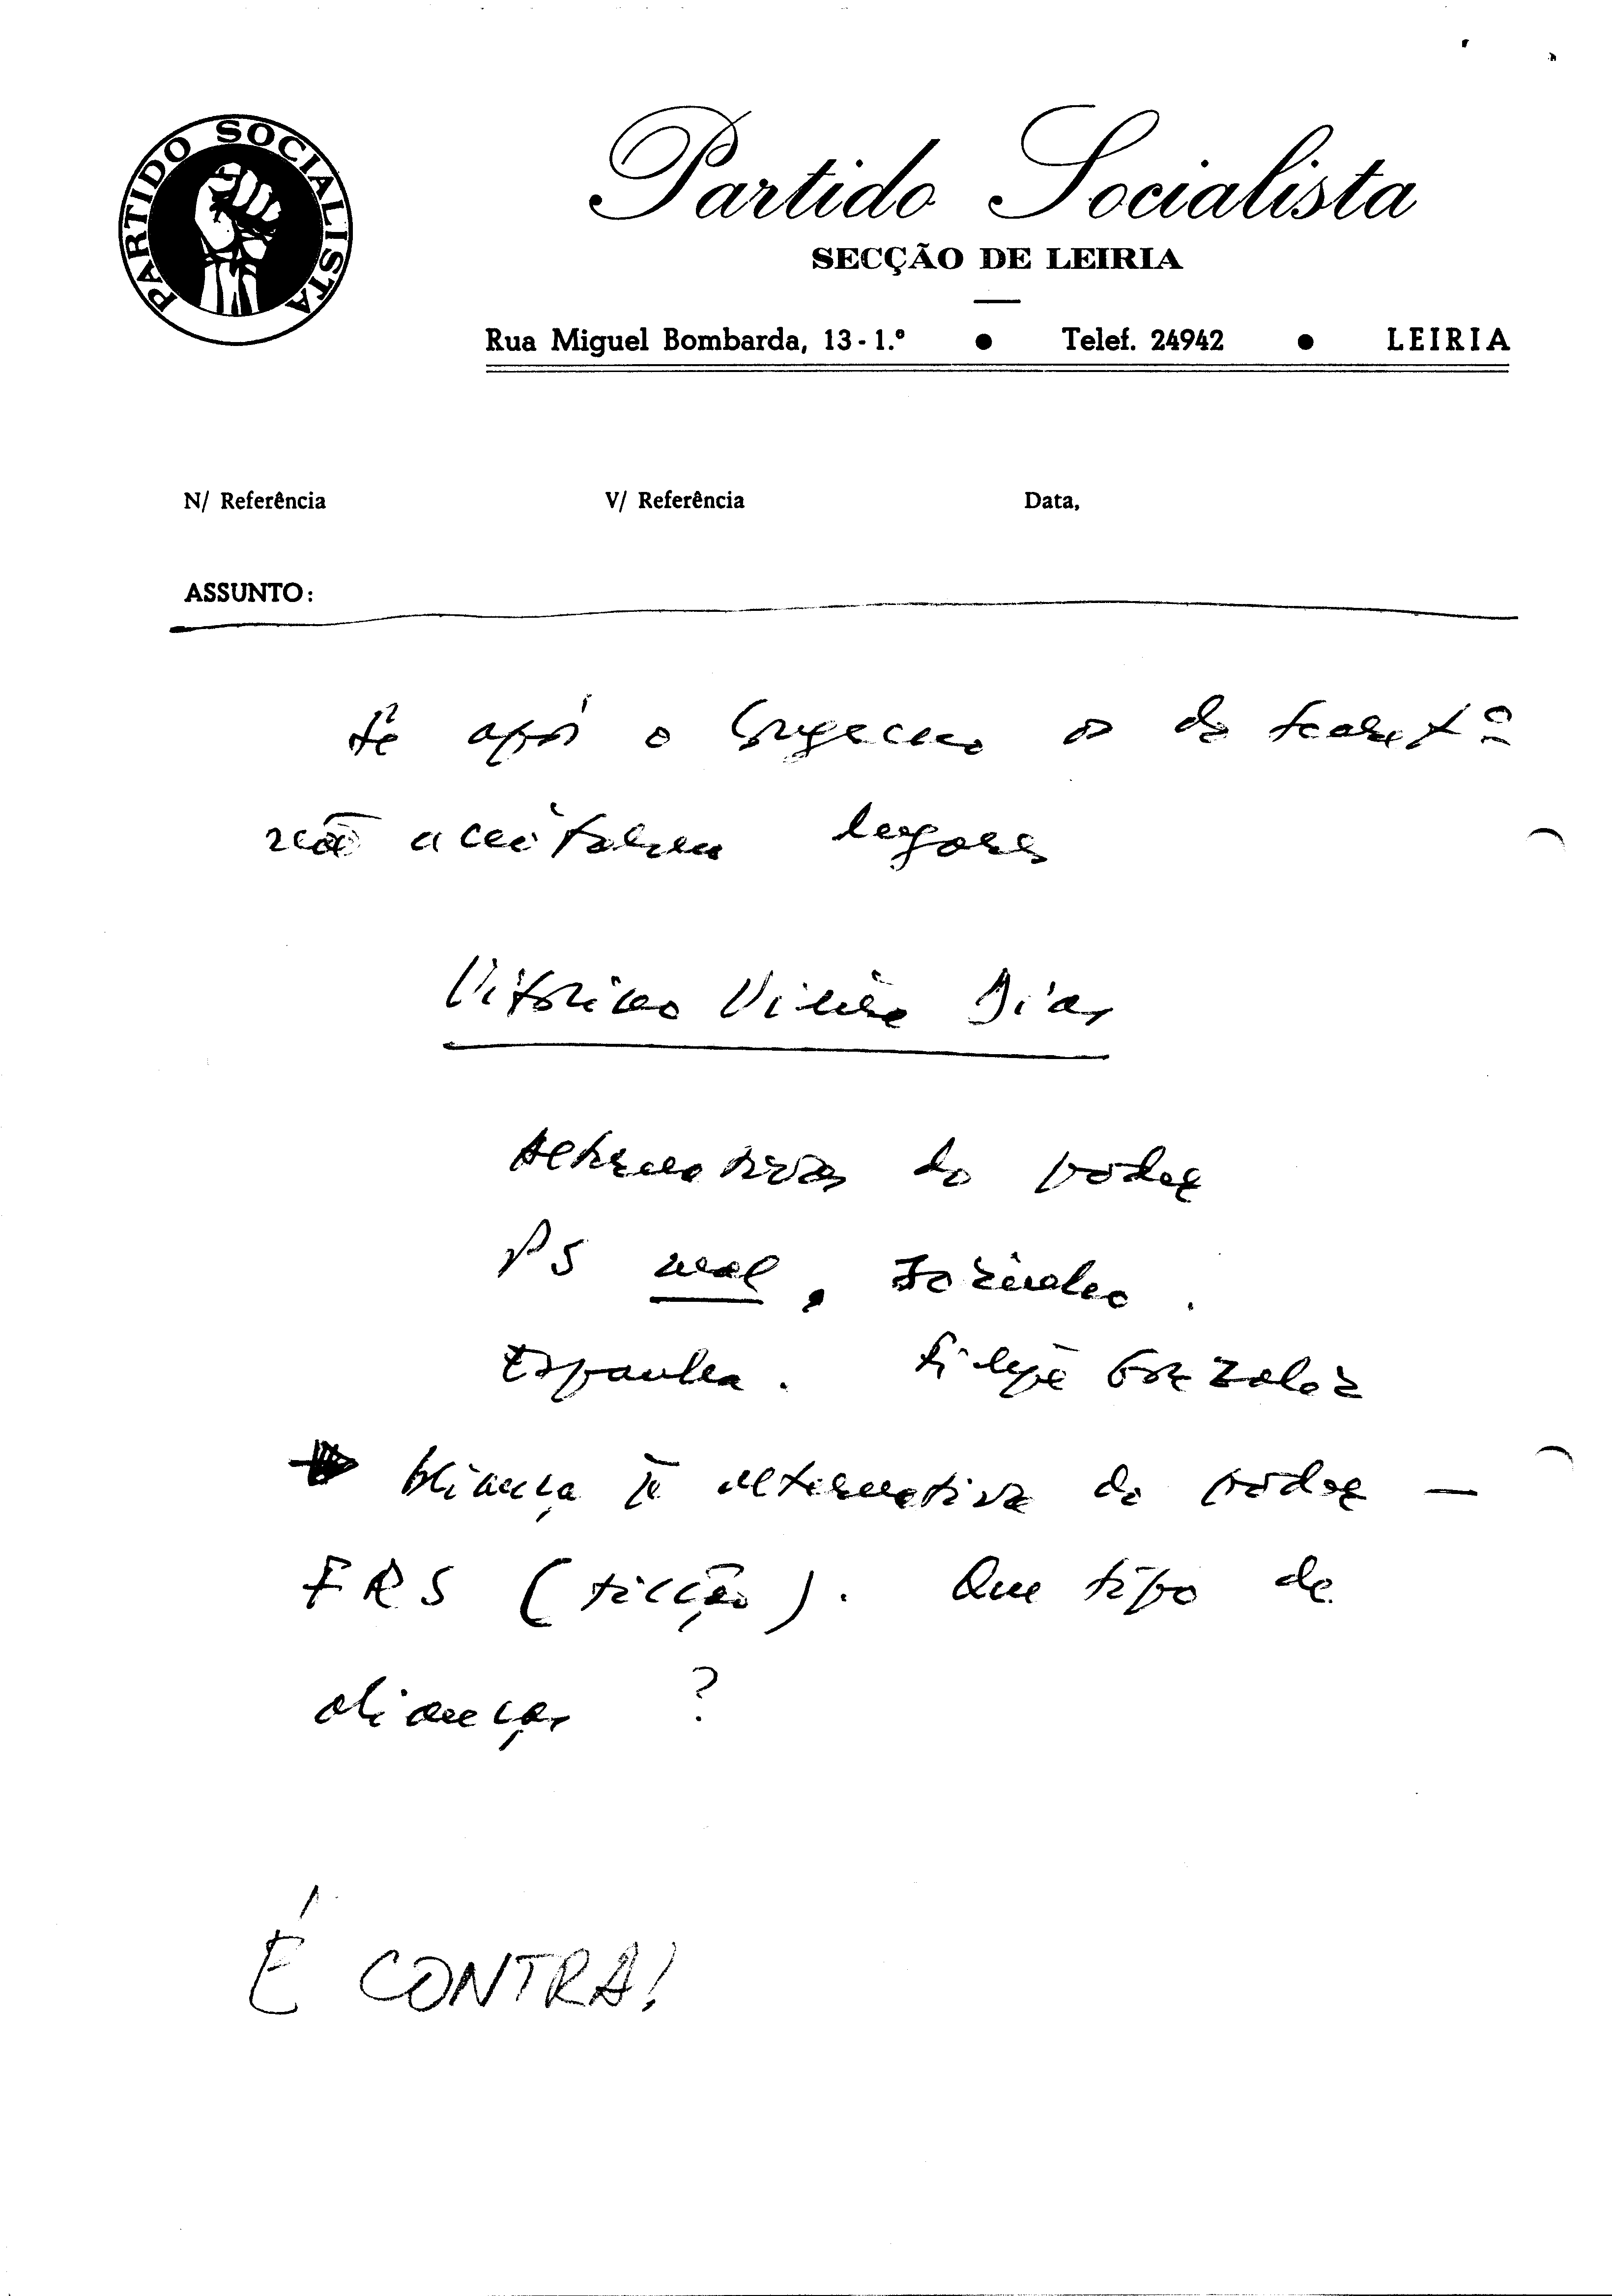 PARTIDO SOCIALISTA
Partido Socialista
SECÇÃO DE LEIRIA
Rua Miguel Bombarda, 13-1.º • Telef. 24942 • LEIRIA
N/ Referência V/ Referência Data,
ASSUNTO:
após o Congresso os do Secret.º
não aceitarem lugares
Vitorino Vieira Dias
Alternativas do poder
PS real,
Espanha. Filipe Gonzalez
Aliança p.ª alternativa do poder —
FRS (ficção). Que tipo de
alianças ?
É CONTRA!